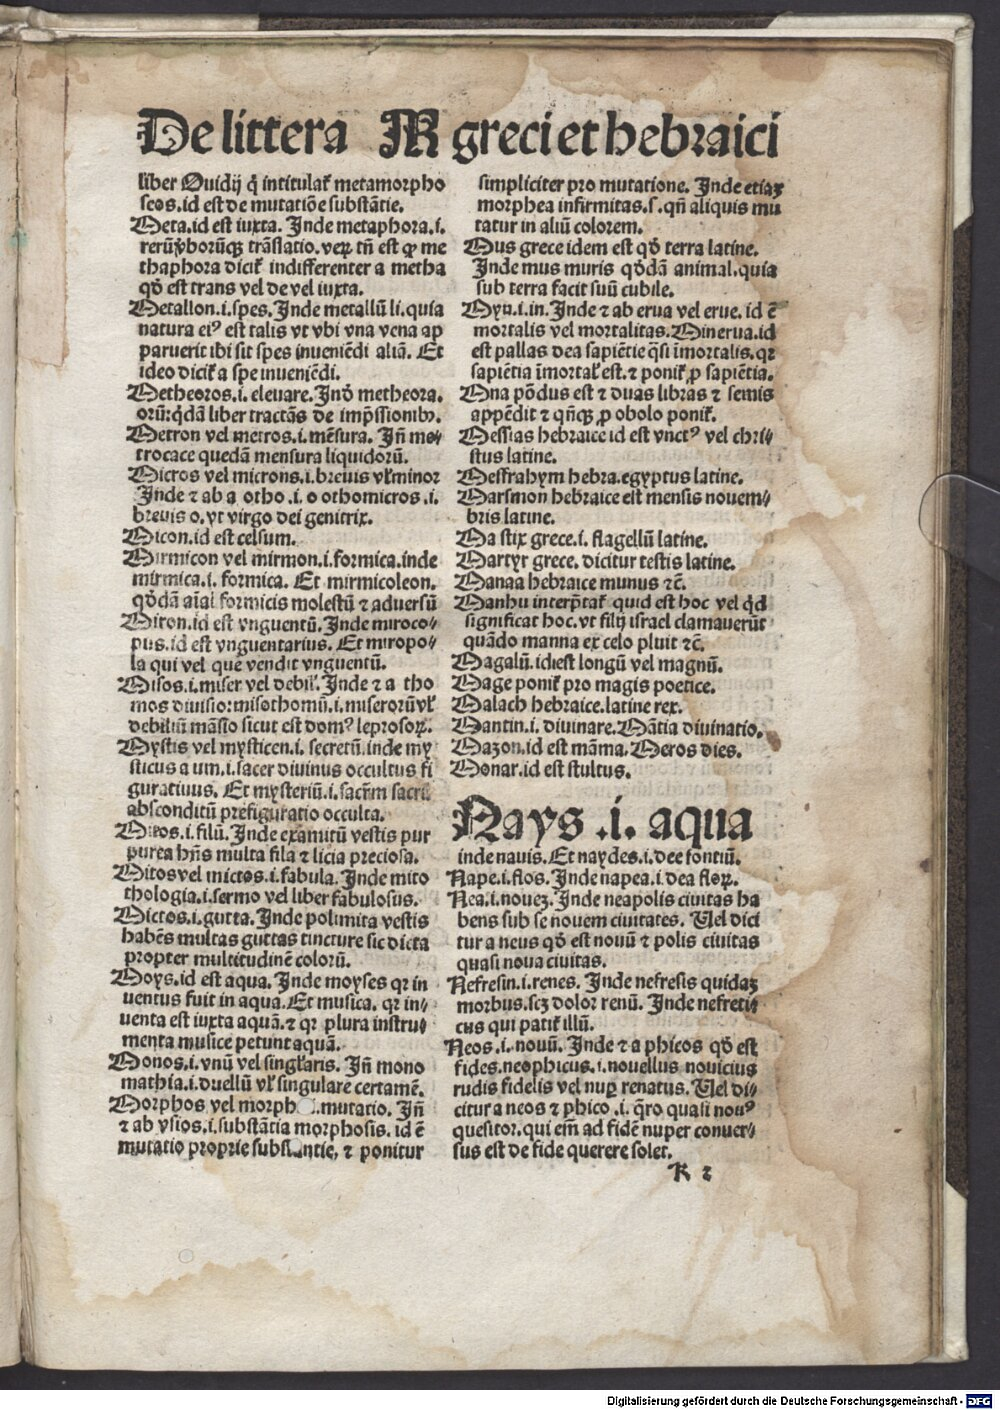 De littera M greci et hebraici
liber Ouidij q̄ intitulat᷑ metamorpho
seos.id est de mutatiōe substātie.
Meta.id est iuxta. Inde metaphora.i.
rerū v̄borūqꝫ trāslatio. veꝝ tn̄ est ꝙ me
thaphora dicit᷑ indifferenter a metha
qd̄ est trans vel de vel iuxta.
Metallon.i.spes. Inde metallū li.quia
natura eiꝰ est talis vt vbi vna vena ap
paruerit ibi sit spes inueniēdi aliā. Et
ideo dicit᷑ a spe inueniēdi.
Metheoros.i. eleuare. Ind̄ metheora.
orū:qdā liber tractās de imp̄ssionibꝰ.
Metron vel metros.i.mēsura. In̄ me⸗
trocace quedā mensura liquidorū.
Micros vel microns.i.breuis vl̄ minor
Inde ⁊ ab a otho .i.o othomicros .i.
breuis o.vt virgo dei genitrix.
Micon.id est celsum.
Mirmicon vel mirmon.i.formica.inde
mirmica.i. formica. Et mirmicoleon.
qd̄dā aīal formicis molestū ⁊ aduersū
Miron.id est vnguentū. Inde miroco⸗
pus.id est vnguentarius. Et miropo⸗
la qui vel que vendit vnguentū.
Misos.i.miser vel debil᷑. Inde ⁊ a tho
mos diuisio:misothomū.i.miserorū vl̄
debiliū māsio sicut est domꝰ leprosoꝝ.
Mystis vel mysticen.i. secretū.inde my
sticus a um.i.sacer diuinus occultus fi
guratiuus. Et mysteriū.i.sacr̄m sacrū
absconditū prefiguratio occulta.
Mitos.i.filū. Inde examitū vestis pur
purea hn̄s multa fila ⁊ licia preciosa.
Mitos vel mictos.i.fabula. Inde mito
thologia.i.sermo vel liber fabulosus.
Mictos.i.gutta. Inde polimita vestis
habēs multas guttas tincture sic dicta
propter multitudinē colorū.
Moys.id est aqua. Inde moyses qr in
uentus fuit in aqua. Et musica. qr in⸗
uenta est iuxta aquā.⁊ qr plura instru⸗
menta musice petunt aquā.
Monos.i.vnū vel singl̄aris. In̄ mono
mathia.i.duellū vl̄ singulare certamē.
Morphos vel morph .i.mutatio. In̄
⁊ ab vsios.i.substātia morphosis. id ē
mutatio proprie substantie, ⁊ ponitur
simpliciter pro mutatione. Inde etiaꝫ
morphea infirmitas.s. qn̄ aliquis mu
tatur in aliū colorem.
Mus grece idem est qd̄ terra latine.
Inde mus muris qd̄dā animal.quia
sub terra facit suū cubile.
Myn.i.in. Inde ⁊ ab erua vel erue. id ē
mortalis vel mortalitas. Minerua.id
est pallas dea sapiētie q̄si īmortalis.qr
sapiētia īmortal᷑ est.⁊ ponit᷑ ꝓ sapiētia.
Mna pōdus est ⁊ duas libras ⁊ semis
appēdit ⁊ qn̄qꝫ ꝓ obolo ponit᷑.
Messias hebraice id est vnctꝰ vel chri⸗
stus latine.
Mesfrahym hebra.egyptus latine.
Marsmon hebraice est mensis nouem⸗
bris latine.
Mastix grece.i. flagellū latine.
Martyr grece. dicitur testis latine.
Manaa hebraice munus ⁊c̄.
Manhu interp̄tat᷑ quid est hoc vel qd̄
significat hoc.vt filij israel clamauerūt
quādo manna ex celo pluit ⁊c̄.
Magalū.idiest longū vel magnū.
Mage ponit᷑ pro magis poetice.
Malach hebraice.latine rex.
Mantin.i. diuinare. Mātia diuinatio.
Mazon.id est māma. Meros dies.
Monar.id est stultus.
Nays .i. aqua
inde nauis. Et naydes.i.dee fontiū.
Nape.i.flos. Inde napea.i.dea floꝝ.
Nea.i.noueꝫ. Inde neapolis ciuitas ha
bens sub se nouem ciuitates. Vel dici
tur a neus qd̄ est nouū ⁊ polis ciuitas
quasi noua ciuitas.
Nefresin.i.renes. Inde nefresis quidaꝫ
morbus.scꝫ dolor renū. Inde nefreti⸗
cus qui patit᷑ illū.
Neos.i.nouū. Inde ⁊ a phicos qd̄ est
fides.neophicus.i.nouellus nouicius
rudis fidelis vel nuꝑ renatus. Vel di⸗
citur a neos ⁊ phico .i. q̄ro quasi nouꝰ
quesitor.qui em̄ ad fidē nuper conuer⸗
sus est de fide querere solet.
K 2
Digitalisierung gefördert durch die Deutsche Forschungsgemeinschaft - DFG